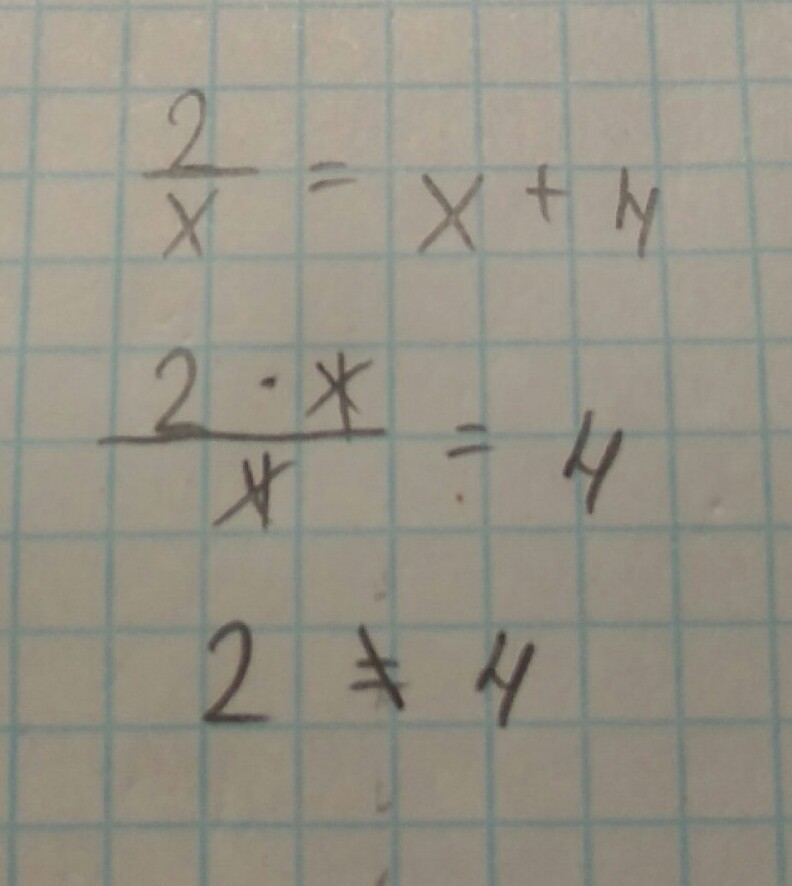 2/x = x + 4
2 · x/x = 4
2 ≠ 4